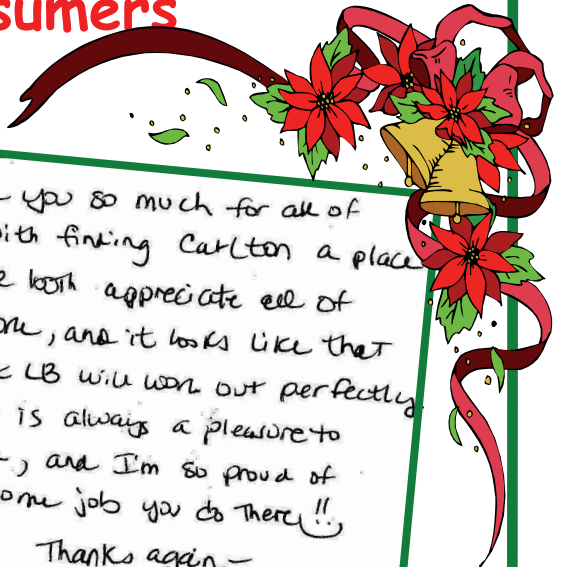 sumers
you so much for all of
ith finding Carlton a place
both appreciate all of
one, and it looks like that
LB will work out perfectly
is always a pleasure to
, and I'm so proud of
ome job you do there!!
Thanks again—